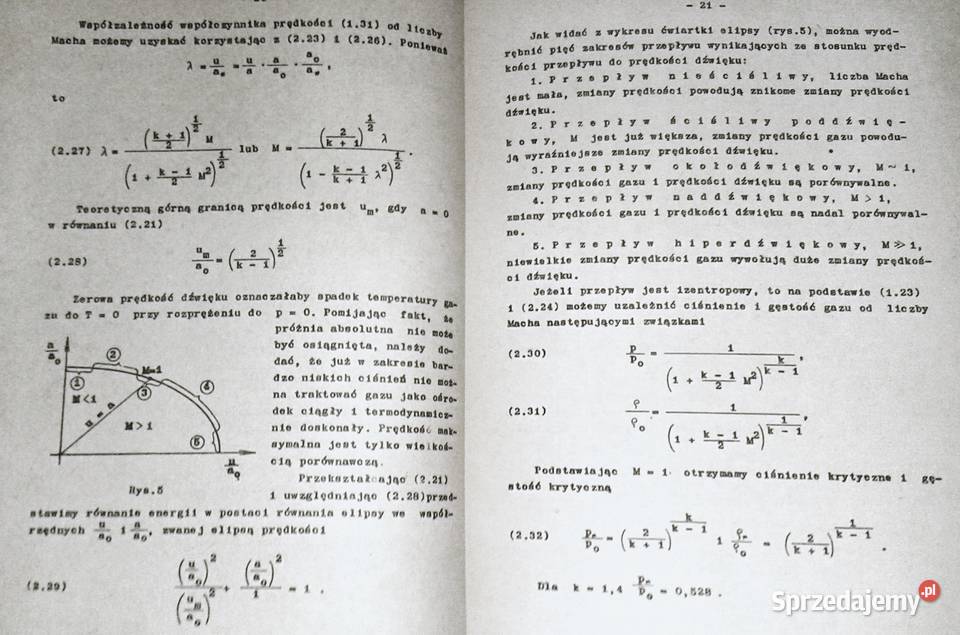 Współzależność współczynnika prędkości (1.31) od liczby
Macha możemy uzyskać korzystając z (2.23) i (2.26). Ponieważ
λ = u/a* = u/a · a/a₀ · a₀/a*,
to
(2.27) λ = ((k + 1)/2)^(1/2) M / (1 + (k - 1)/2 M²)^(1/2) lub M = (2/(k + 1))^(1/2) λ / (1 - (k - 1)/(k + 1) λ²)^(1/2) .
Teoretyczną górną granicą prędkości jest uₘ, gdy a = 0
w równaniu (2.21)
(2.28) uₘ/a₀ = (2/(k - 1))^(1/2)
Zerowa prędkość dźwięku oznaczałaby spadek temperatury ga-
zu do T = 0 przy rozprężeniu do p = 0. Pomijając fakt, że
próżnia absolutna nie może
być osiągnięta, należy do-
dać, że już w zakresie bar-
dzo niskich ciśnień nie moż-
na traktować gazu jako ośro-
dek ciągły i termodynamicz-
nie doskonały. Prędkość mak-
symalna jest tylko wielkoś-
cią porównawczą.
Przekształcając (2.21)
i uwzględniając (2.28)przed-
a/a₀
① ② M=1 ③ ④ ⑤
M<1
u = a
M>1
u/a₀
Rys.5
stawimy równanie energii w postaci równania elipsy we współ-
rzędnych u/a₀ i a/a₀, zwanej elipsą prędkości
(2.29) (u/a₀)²/(uₘ/a₀)² + (a/a₀)²/1 = 1 .
- 21 -
Jak widać z wykresu ćwiartki elipsy (rys.5), można wyod-
rębnić pięć zakresów przepływu wynikających ze stosunku pręd-
kości przepływu do prędkości dźwięku:
1. P r z e p ł y w n i e ś c i ś l i w y, liczba Macha
jest mała, zmiany prędkości powodują znikome zmiany prędkości
dźwięku.
2. P r z e p ł y w ś c i ś l i w y p o d d ź w i ę -
k o w y, M jest już większa, zmiany prędkości gazu powodu-
ją wyraźniejsze zmiany prędkości dźwięku.
3. P r z e p ł y w o k o ł o d ź w i ę k o w y, M ~ 1,
zmiany prędkości gazu i prędkości dźwięku są porównywalne.
4. P r z e p ł y w n a d d ź w i ę k o w y, M > 1,
zmiany prędkości gazu i prędkości dźwięku są nadal porównywal-
ne.
5. P r z e p ł y w h i p e r d ź w i ę k o w y, M ≫ 1,
niewielkie zmiany prędkości gazu wywołują duże zmiany prędkoś-
ci dźwięku.
Jeżeli przepływ jest izentropowy, to na podstawie (1.23)
i (2.24) możemy uzależnić ciśnienie i gęstość gazu od liczby
Macha następującymi związkami
(2.30) p/p₀ = 1/(1 + (k - 1)/2 M²)^(k/(k - 1)),
(2.31) ρ/ρ₀ = 1/(1 + (k - 1)/2 M²)^(1/(k - 1)).
Podstawiając M = 1 otrzymamy ciśnienie krytyczne i gę-
stość krytyczną
(2.32) p*/p₀ = (2/(k + 1))^(k/(k - 1)) i ρ*/ρ₀ = (2/(k + 1))^(1/(k - 1)) .
Dla k = 1,4 p*/p₀ = 0,528 .
Sprzedajemy.pl